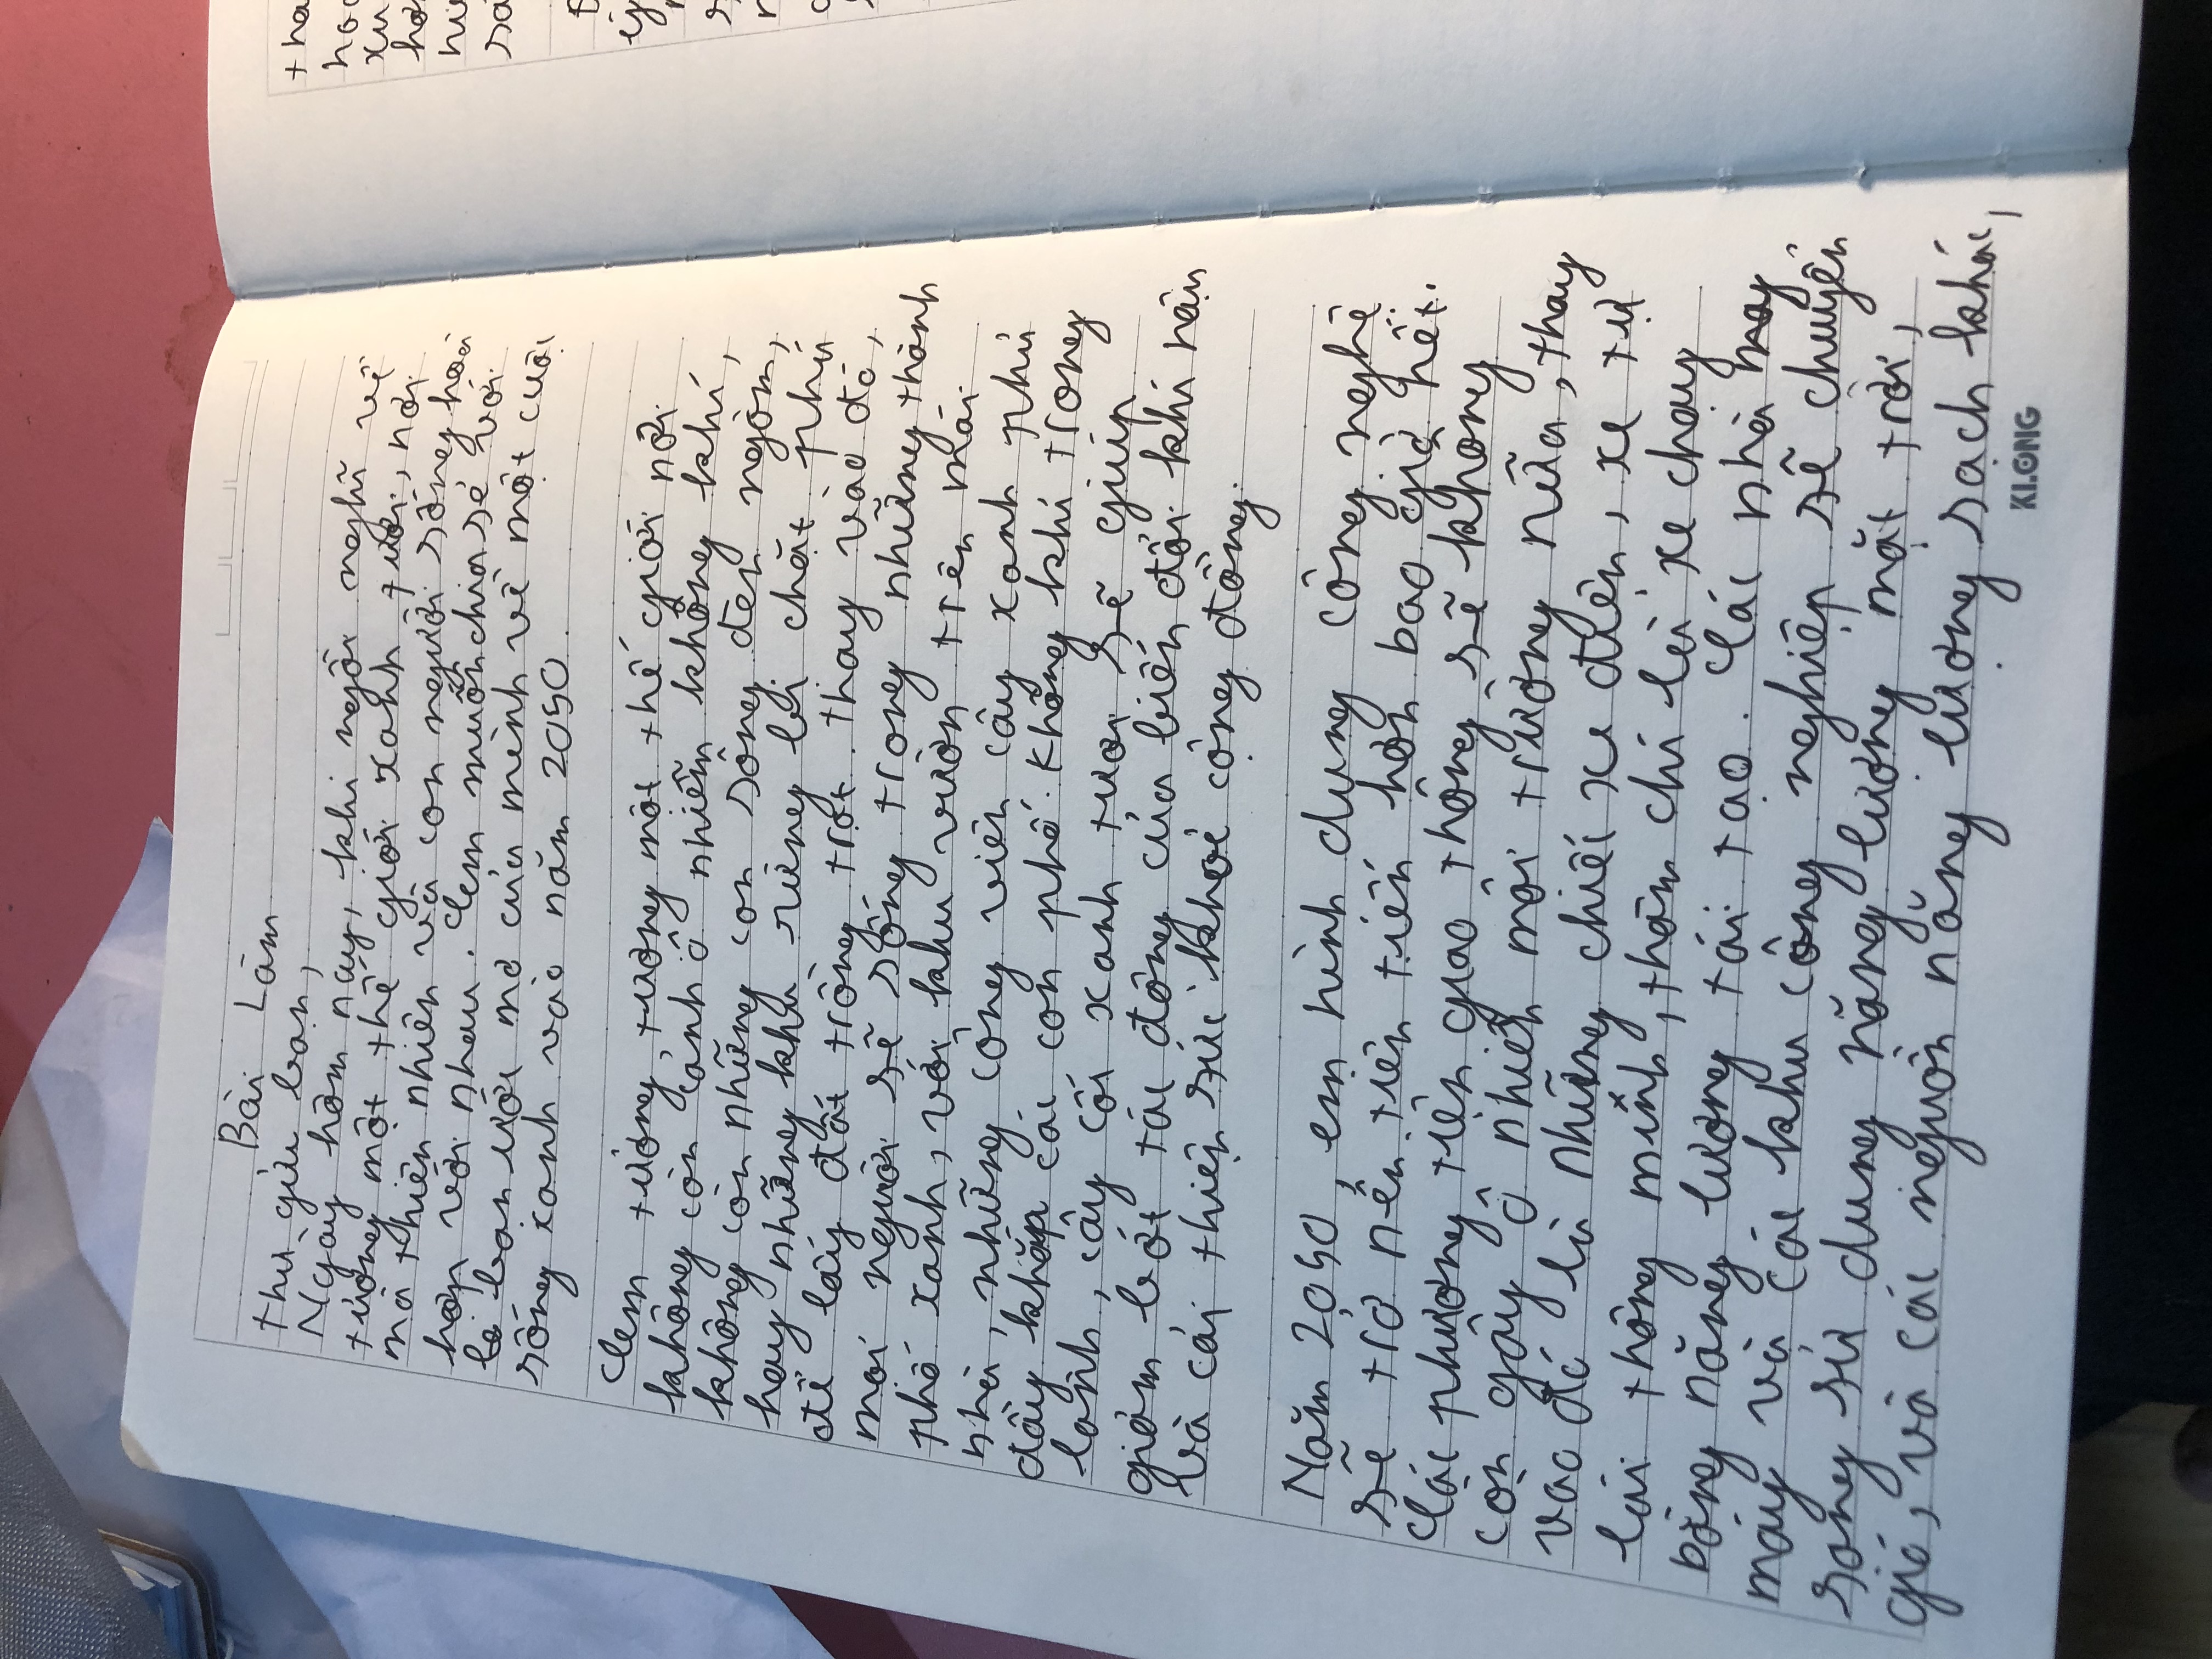 Bài Làm
Thư gửi bạn,
Ngày hôm nay, khi ngồi nghĩ về
tương một thế giới xanh tươi, nơi
mà thiên nhiên và con người sống hài
hòa với nhau. Em muốn chia sẻ với
bạn ước mơ của mình về một cuộc
sống xanh vào năm 2050.
Em tưởng tượng một thế giới nơi
không còn cảnh ô nhiễm không khí,
không còn những con sông đen ngòm,
hay những khu rừng bị chặt phá
để lấy đất trồng trọt. Thay vào đó,
mọi người sẽ sống trong những thành
phố xanh, với khu vườn trên mái
nhà, những công viên cây xanh phủ
đầy khắp các con phố. Không khí trong
lành, cây cối xanh tươi sẽ giúp
giảm bớt tác động của biến đổi khí hậu
và cải thiện sức khỏe cộng đồng.
Năm 2050, em hình dung công nghệ
sẽ trở nên tiên tiến hơn bao giờ hết.
Các phương tiện giao thông sẽ không
còn gây ô nhiễm môi trường nữa, thay
vào đó là những chiếc xe điện, xe tự
lái thông minh, thậm chí là xe chạy
bằng năng lượng tái tạo. Các nhà máy
máy và các khu công nghiệp sẽ chuyển
sang sử dụng năng lượng mặt trời,
gió, và các nguồn năng lượng sạch khác,
KLONG